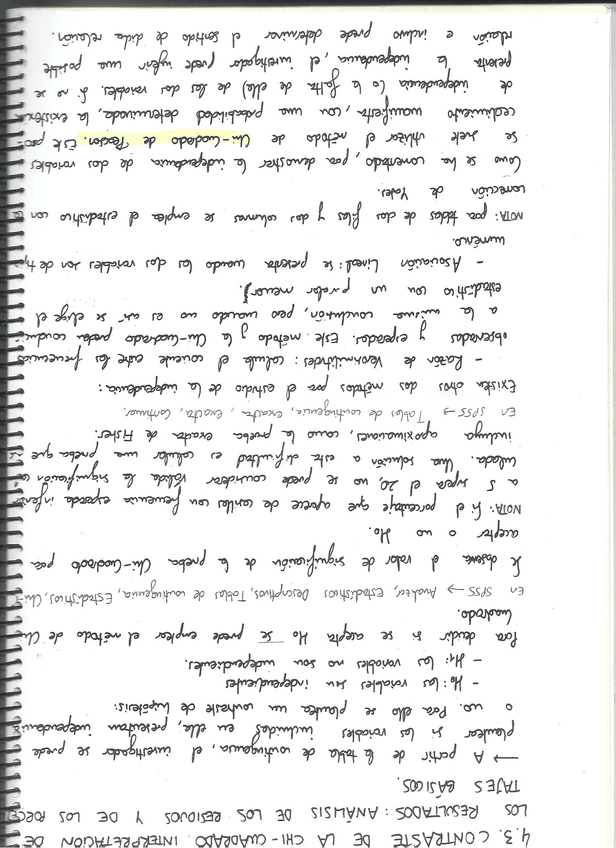 4.3. CONTRASTE DE LA CHI-CUADRADO. INTERPRETACIÓN DE
LOS RESULTADOS: ANÁLISIS DE LOS RESIDUOS Y DE LOS PORCEN
TAJES BÁSICOS.
→ A partir de la tabla de contingencia, el investigador se puede
plantear si las variables incluidas en ella, presentan independencia
o no. Para ello se plantea un contraste de hipótesis:
- H0: las variables son independientes
- H1: las variables no son independientes.
Para decidir si se acepta H0 se puede emplear el método de Chi
Cuadrado.
En SPSS → Analizar, Estadísticos Descriptivos, Tablas de contingencia, Estadísticos, Chi-C
Se observa el valor de significación de la prueba Chi-Cuadrado para
aceptar o no H0.
NOTA: Si el porcentaje que aparece de casillas con frecuencia esperada inferior
a 5 supera el 20, no se puede considerar válida la significación cal
culada. Una solución a esta dificultad es calcular una prueba que
incluya aproximaciones, como la prueba exacta de Fisher.
En SPSS → Tablas de contingencia, exacta, exacta, Continuar.
Existen otros dos métodos para el estudio de la independencia:
- Razón de Verosimilitudes: calcula el cociente entre las frecuencias
observadas y esperadas. Este método y la Chi-Cuadrado pueden conducir
a la misma conclusión, pero cuando no es así se elige el
estadístico con un p-valor menor.
- Asociación Lineal: se presenta cuando las dos variables son de tipo
numérico.
NOTA: para tablas de dos filas y dos columnas se emplea el estadístico con la
corrección de Yates.
Como se ha comentado, para demostrar la independencia de dos variables
se suele utilizar el método de Chi-Cuadrado de Pearson. Este pro
cedimiento manifiesta, con una probabilidad determinada, la existencia
de independencia (o la falta de ella) de las dos variables. Si no se
presenta la independencia, el investigador puede inferir una posible
relación e incluso puede determinar el sentido de dicha relación.